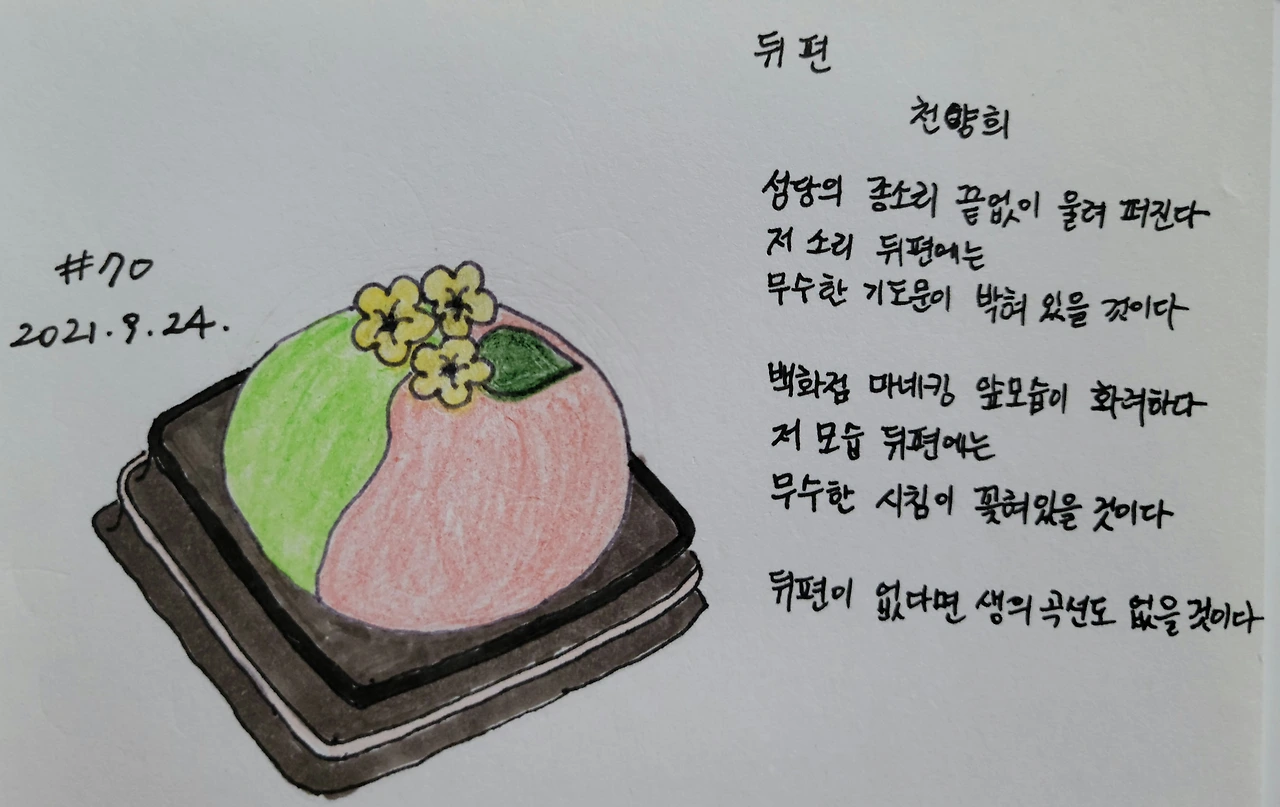 #70
2021.9.24.
뒤편
천양희
성당의 종소리 끝없이 울려 퍼진다
저 소리 뒤편에는
무수한 기도문이 박혀 있을 것이다
백화점 마네킹 앞모습이 화려하다
저 모습 뒤편에는
무수한 시침이 꽂혀있을 것이다
뒤편이 없다면 생의 곡선도 없을 것이다